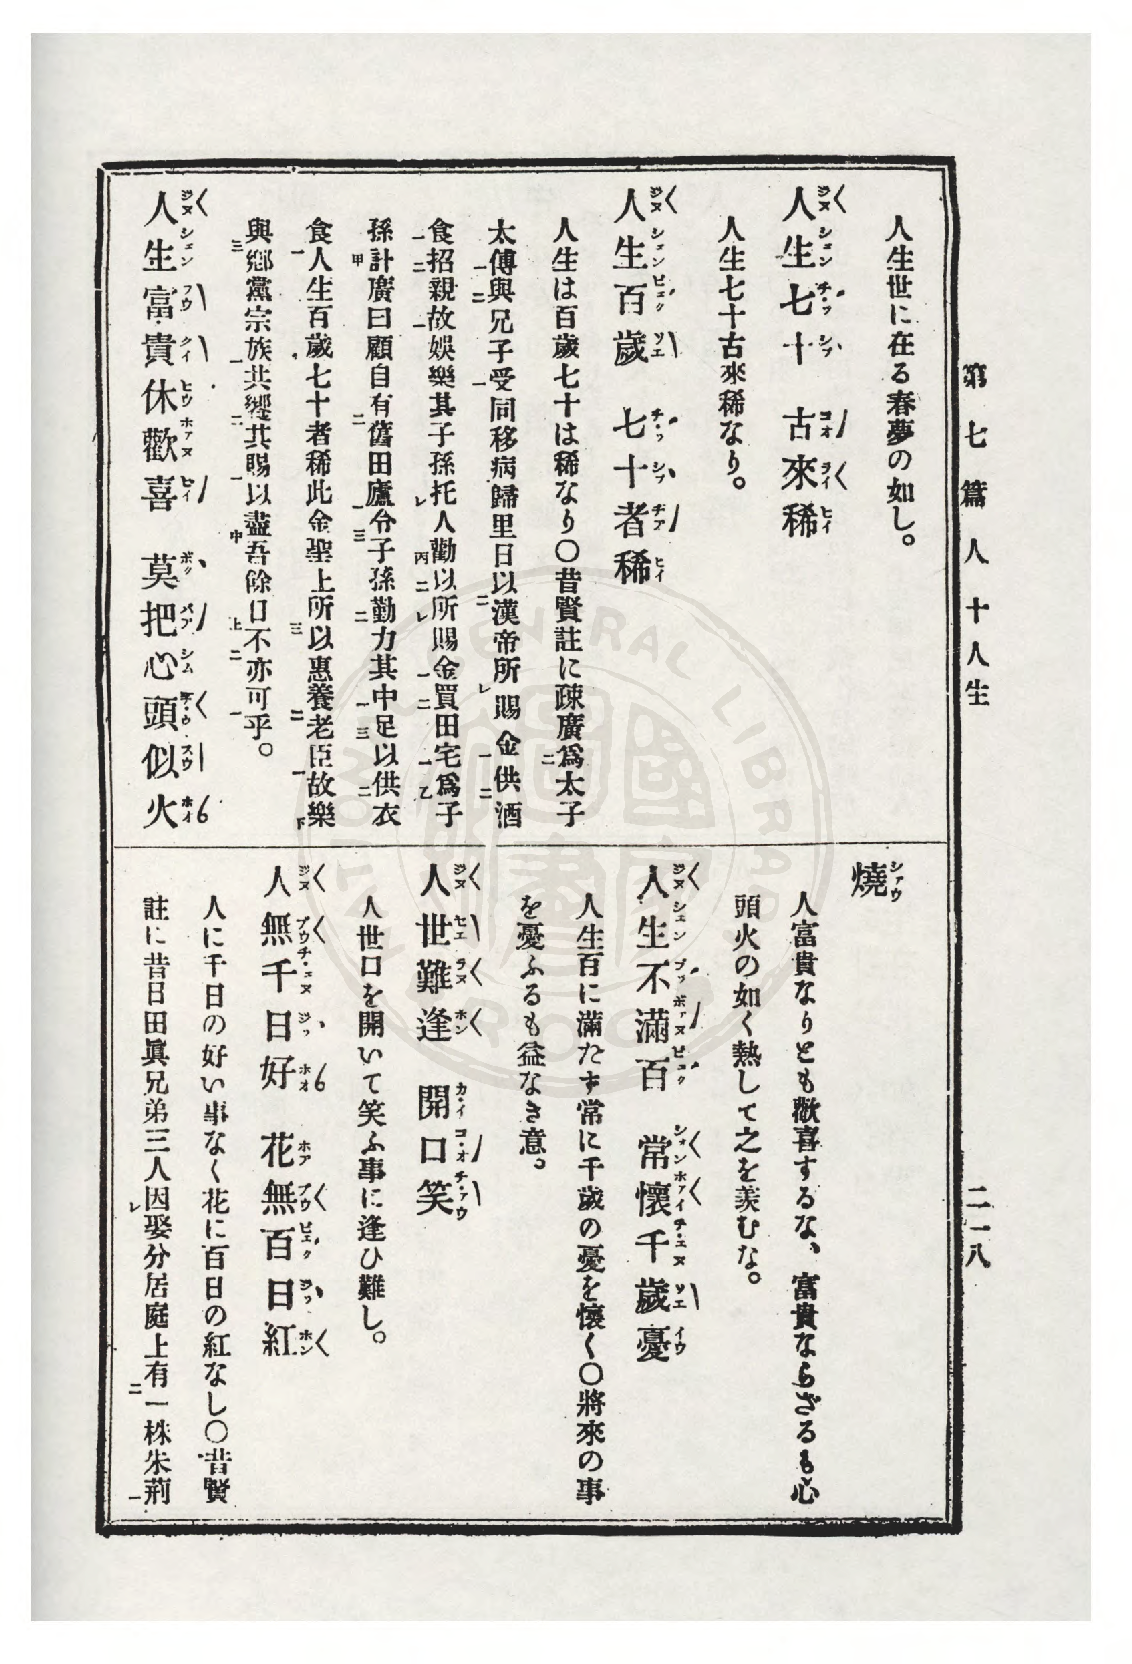 第七篇 人 十人生 二一八
人生世に在る春夢の如し。
人生七十 古來稀
人生七十古來稀なり。
人生百歲 七十者稀
人生は百歲七十は稀なり〇昔賢註に疎廣爲太子
太傅與兄子受同移病歸里日以漢帝所賜金供酒
食招親故娛樂其子孫托人勸以所賜金買田宅爲子
孫計廣曰顧自有舊田廬令子孫勤力其中足以供衣
食人生百歲七十者稀此金聖上所以惠養老臣故樂
與鄕黨宗族共饗其賜以盡吾餘日不亦可乎。
人生富貴休歡喜 莫把心頭似火
燒
人富貴なりとも歡喜するな、富貴ならざるも心
頭火の如く熱して之を羨むな。
人生不滿百 常懷千歲憂
人生百に滿たず常に千歲の憂を懷く〇將來の事
を憂ふるも益なき意。
人世難逢 開口笑
人世口を開いて笑ふ事に逢ひ難し。
人無千日好 花無百日紅
人に千日の好い事なく花に百日の紅なし〇昔賢
註に昔日田眞兄弟三人因娶分居庭上有一株朱荊
NATIONAL CENTRAL LIBRARY R.O.C.